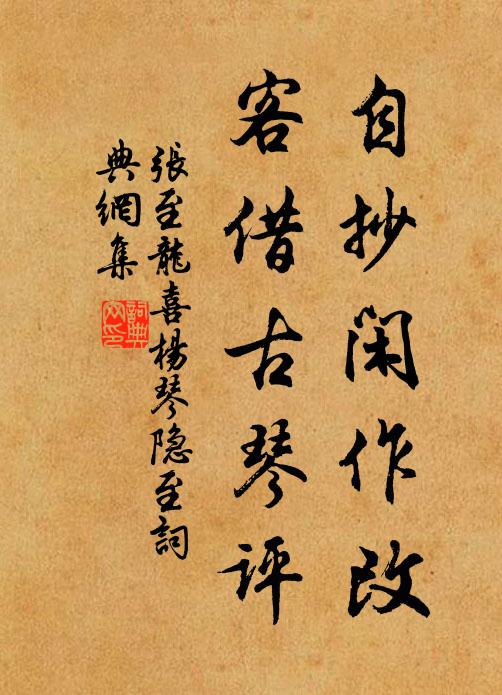 自抄閑作改
客借古琴評
張至龍喜楊琴隐至詞
典網集
詞典网印